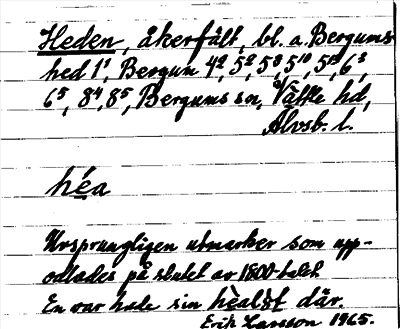 Heden, åkerfält, bl. a. Bergums
hed 1¹, Bergum 4², 5², 5⁸, 5¹⁰, 5¹², 6³,
6⁵, 8⁴, 8⁵, Bergums sn, Vättle hd,
Älvsb. l.
héa
Ursprungligen utmarker som upp-
odlades på slutet av 1800-talet
En var hade sin healåt där.
Erik Larsson 1965.